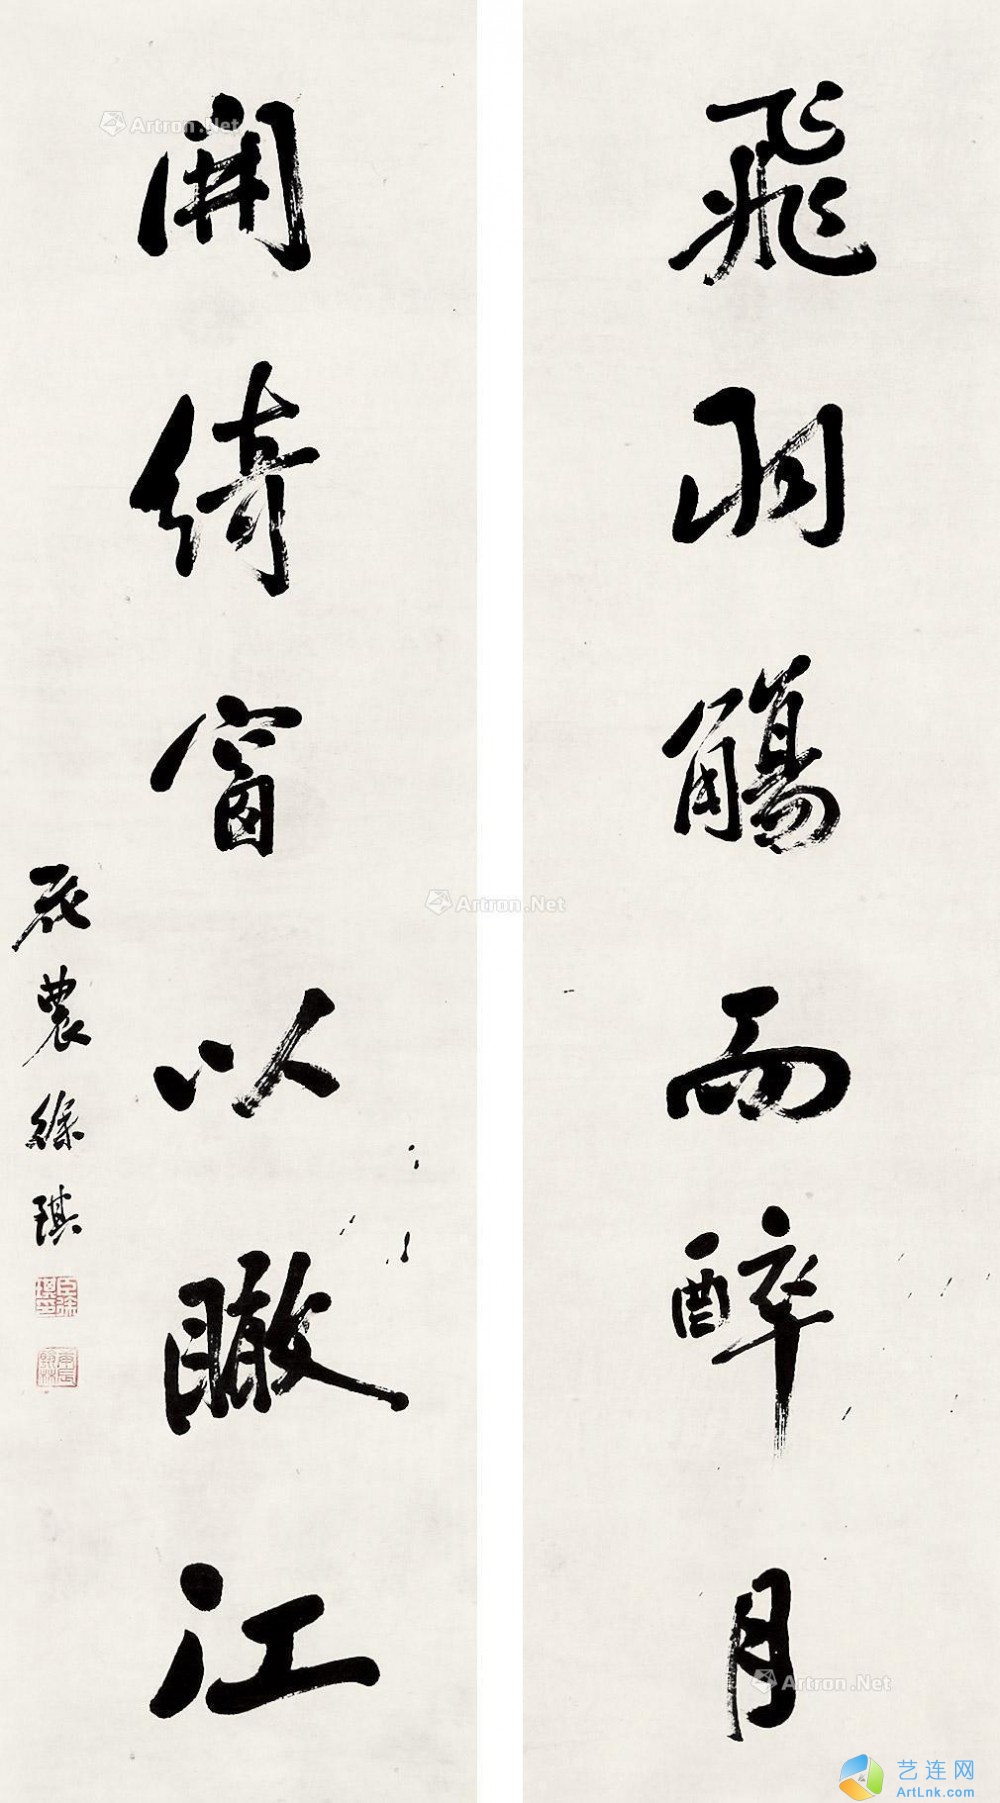 飛羽觴而醉月
開綺窗以瞰江
花農徐琪
臣徐琪印
Artron.Net
Artron.Net
Artron.Net
艺连网
ArtLnk.com